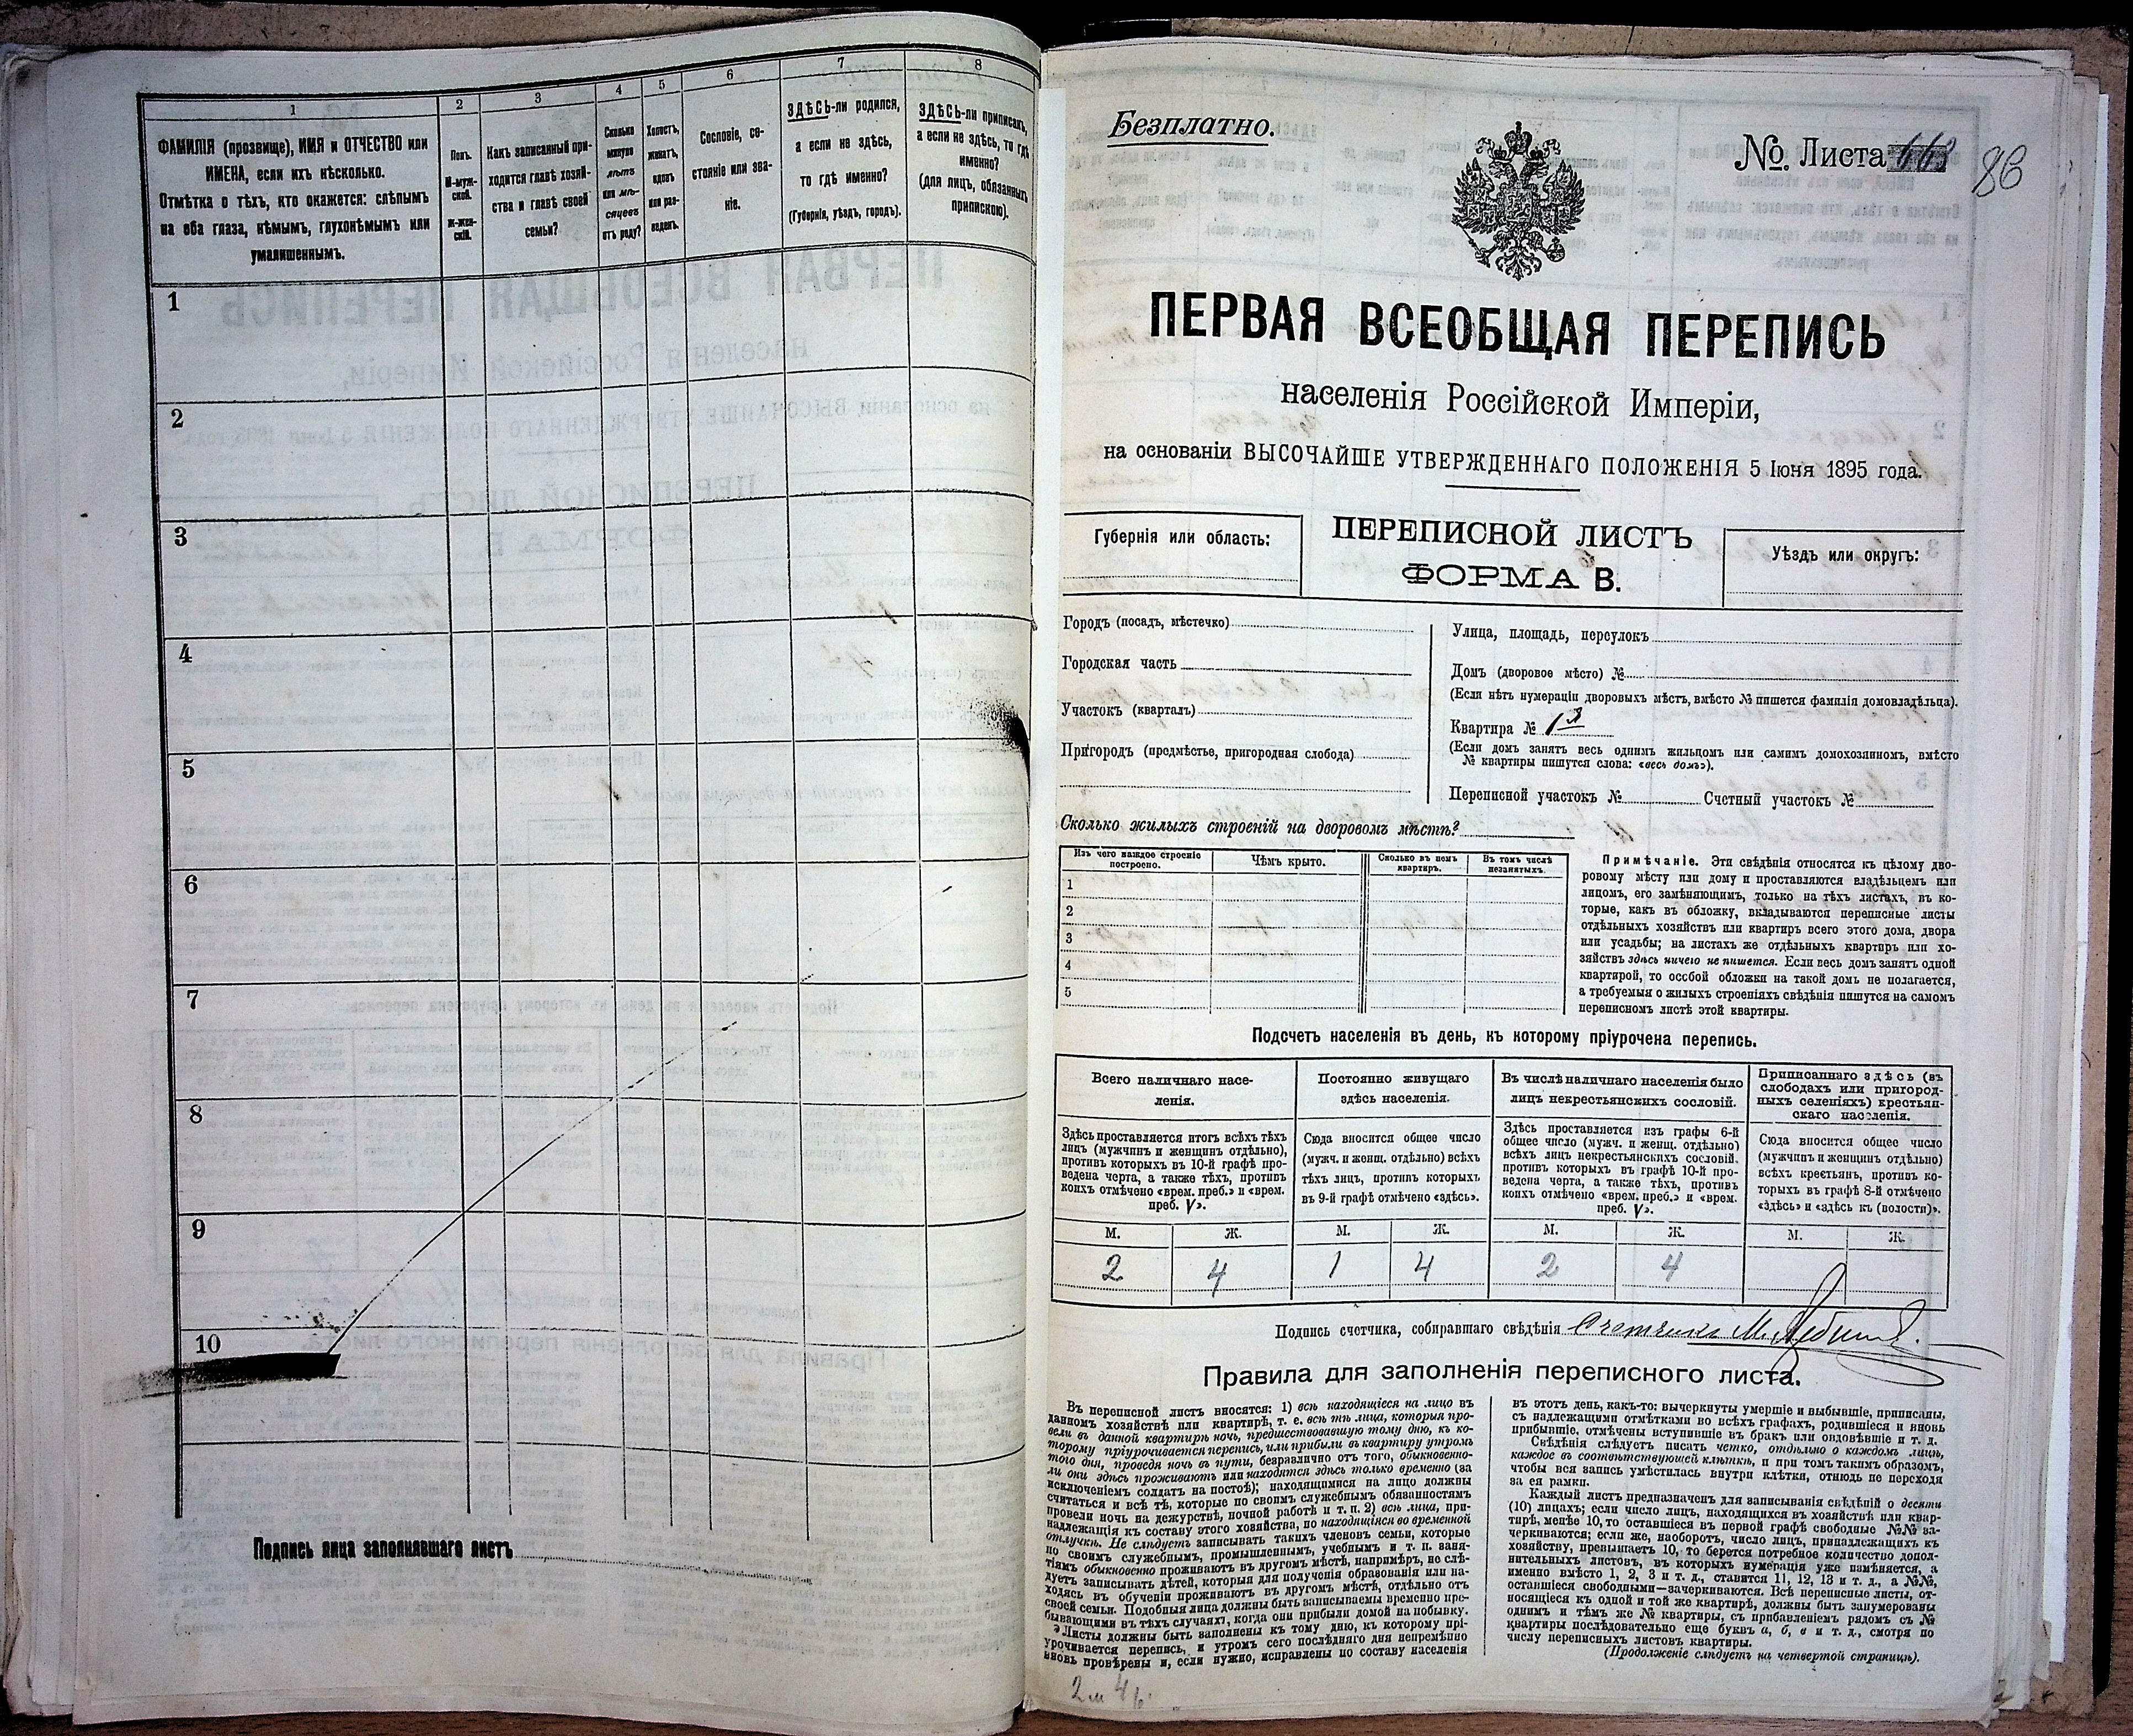 1
2
3
4
5
6
7
8
ФАМИЛІЯ (прозвище), ИМЯ и ОТЧЕСТВО или
ИМЕНА, если ихъ нѣсколько.
Отмѣтка о тѣхъ, кто окажется: слѣпымъ
на оба глаза, нѣмымъ, глухонѣмымъ или
умалишеннымъ.
Полъ.
М-муж-
ской.
Ж-жен-
скій.
Какъ записанный при-
ходится главѣ хозяй-
ства и главѣ своей
семьи?
Сколько
минуло
лѣтъ
или мѣ-
сяцевъ
отъ роду?
Холостъ,
женатъ,
вдовъ
или раз-
веденъ.
Сословіе, со-
стояніе или зва-
ніе.
ЗДѢСЬ-ли родился,
а если не здѣсь,
то гдѣ именно?
(Губернія, уѣздъ, городъ).
ЗДѢСЬ-ли приписанъ,
а если не здѣсь, то гдѣ
именно?
(для лицъ, обязанныхъ
припискою).
1
2
3
4
5
6
7
8
9
10
Подпись лица заполнявшаго листъ
Безплатно.
№ Листа
86
ПЕРВАЯ ВСЕОБЩАЯ ПЕРЕПИСЬ
населенія Россійской Имперіи,
на основаніи ВЫСОЧАЙШЕ УТВЕРЖДЕННАГО ПОЛОЖЕНІЯ 5 Іюня 1895 года.
Губернія или область:
ПЕРЕПИСНОЙ ЛИСТЪ
ФОРМА В.
Уѣздъ или округъ:
Городъ (посадъ, мѣстечко)
Городская часть
Участокъ (кварталъ)
Пригородъ (предмѣстье, пригородная слобода)
Улица, площадь, переулокъ
Домъ (дворовое мѣсто) №
(Если нѣтъ нумераціи дворовыхъ мѣстъ, вмѣсто № пишется фамилія домовладѣльца).
Квартира № 1
(Если домъ занятъ весь однимъ жильцомъ или самимъ домохозяиномъ, вмѣсто
№ квартиры пишутся слова: «весь домъ»).
Переписной участокъ № Счетный участокъ №
Сколько жилыхъ строеній на дворовомъ мѣстѣ?
Изъ чего каждое строеніе
построено.
Чѣмъ крыто.
Сколько въ немъ
квартиръ.
Въ томъ числѣ
незанятыхъ.
1
2
3
4
5
Примѣчаніе. Эти свѣдѣнія относятся къ цѣлому дво-
ровому мѣсту или дому и проставляются владѣльцемъ или
лицомъ, его замѣняющимъ, только на тѣхъ листахъ, въ ко-
торые, какъ въ обложку, вкладываются переписные листы
отдѣльныхъ хозяйствъ или квартиръ всего этого дома, двора
или усадьбы; на листахъ же отдѣльныхъ квартиръ или хо-
зяйствъ здѣсь ничего не пишется. Если весь домъ занятъ одной
квартирой, то особой обложки на такой домъ не полагается,
а требуемыя о жилыхъ строеніяхъ свѣдѣнія пишутся на самомъ
переписномъ листѣ этой квартиры.
Подсчетъ населенія въ день, къ которому пріурочена перепись.
Всего наличнаго насе-
ленія.
Постоянно живущаго
здѣсь населенія.
Въ числѣ наличнаго населенія было
лицъ некрестьянскихъ сословій.
Приписаннаго здѣсь (въ
слободахъ или пригород-
ныхъ селеніяхъ) крестьян-
скаго населенія.
Здѣсь проставляется итогъ всѣхъ тѣхъ
лицъ (мужчинъ и женщинъ отдѣльно),
противъ которыхъ въ 10-й графѣ про-
ведена черта, а также тѣхъ, противъ
коихъ отмѣчено «врем. преб.» и «врем.
преб. V».
Сюда вносится общее число
(мужч. и женщ. отдѣльно) всѣхъ
тѣхъ лицъ, противъ которыхъ
въ 9-й графѣ отмѣчено «здѣсь».
Здѣсь проставляется изъ графы 6-й
общее число (мужч. и женщ. отдѣльно)
всѣхъ лицъ некрестьянскихъ сословій,
противъ которыхъ въ графѣ 10-й про-
ведена черта, а также тѣхъ, противъ
коихъ отмѣчено «врем. преб.» и «врем.
преб. V».
Сюда вносится общее число
(мужчинъ и женщинъ отдѣльно)
всѣхъ крестьянъ, противъ ко-
торыхъ въ графѣ 8-й отмѣчено
«здѣсь» и «здѣсь къ (волости)».
М. Ж. М. Ж. М. Ж. М. Ж.
2 4 1 4 2 4
Подпись счетчика, собиравшаго свѣдѣнія Счетчикъ М.
Правила для заполненія переписного листа.
Въ переписной листъ вносятся: 1) всѣ находящіеся на лицо въ
данномъ хозяйствѣ или квартирѣ, т. е. всѣ тѣ лица, которыя про-
вели въ данной квартирѣ ночь, предшествовавшую тому дню, къ ко-
торому пріурочивается перепись, или прибыли въ квартиру утромъ
того дня, проведя ночь въ пути, безразлично отъ того, обыкновенно-
ли они здѣсь проживаютъ или находятся здѣсь только временно (за
исключеніемъ солдатъ на постоѣ); находящимися на лицо должны
считаться и всѣ тѣ, которые по своимъ служебнымъ обязанностямъ
провели ночь на дежурствѣ, ночной работѣ и т. п. 2) всѣ лица, при-
надлежащія къ составу этого хозяйства, но находящіяся во временной
отлучкѣ. Не слѣдуетъ записывать такихъ членовъ семьи, которые
по своимъ служебнымъ, промышленнымъ, учебнымъ и т. п. заня-
тіямъ обыкновенно проживаютъ въ другомъ мѣстѣ, напримѣръ, не слѣ-
дуетъ записывать дѣтей, которыя для полученія образованія или на-
ходясь въ обученіи проживаютъ въ другомъ мѣстѣ, отдѣльно отъ
своей семьи. Подобныя лица должны быть записываемы временно пре-
бывающими въ тѣхъ случаяхъ, когда они прибыли домой на побывку.
Листы должны быть заполнены къ тому дню, къ которому прі-
урочивается перепись, и утромъ сего послѣдняго дня непремѣнно
вновь провѣрены и, если нужно, исправлены по составу населенія
въ этотъ день, какъ-то: вычеркнуты умершіе и выбывшіе, приписаны,
съ надлежащими отмѣтками во всѣхъ графахъ, родившіеся и вновь
прибывшіе, отмѣчены вступившіе въ бракъ или овдовѣвшіе и т. д.
Свѣдѣнія слѣдуетъ писать четко, отдѣльно о каждомъ лицѣ,
каждое въ соотвѣтствующей клѣткѣ, и при томъ такимъ образомъ,
чтобы вся запись умѣстилась внутри клѣтки, отнюдь не переходя
за ея рамки.
Каждый листъ предназначенъ для записыванія свѣдѣній о десяти
(10) лицахъ; если число лицъ, находящихся въ хозяйствѣ или квар-
тирѣ, менѣе 10, то оставшіеся въ первой графѣ свободные №№ за-
черкиваются; если же, наоборотъ, число лицъ, принадлежащихъ къ
хозяйству, превышаетъ 10, то берется потребное количество допол-
нительныхъ листовъ, въ которыхъ нумерація уже измѣняется, а
именно вмѣсто 1, 2, 3 и т. д., ставится 11, 12, 13 и т. д., а №№,
оставшіеся свободными—зачеркиваются. Всѣ переписные листы, от-
носящіеся къ одной и той же квартирѣ, должны быть занумерованы
однимъ и тѣмъ же № квартиры, съ прибавленіемъ рядомъ съ №
квартиры послѣдовательно еще буквъ а, б, в и т. д., смотря по
числу переписныхъ листовъ квартиры.
(Продолженіе слѣдуетъ на четвертой страницѣ).